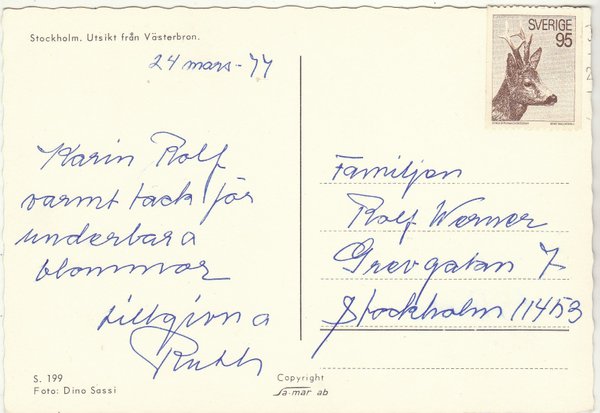 Stockholm. Utsikt från Västerbron.
24 mars - 77
Karin Rolf
varmt tack för
underbara
blommor
tillgivna
Ruth
SVERIGE
95
Familjen
Rolf Werner
Grevgatan 7
Stockholm 11453
S. 199
Foto: Dino Sassi
Copyright
Sa-mar ab